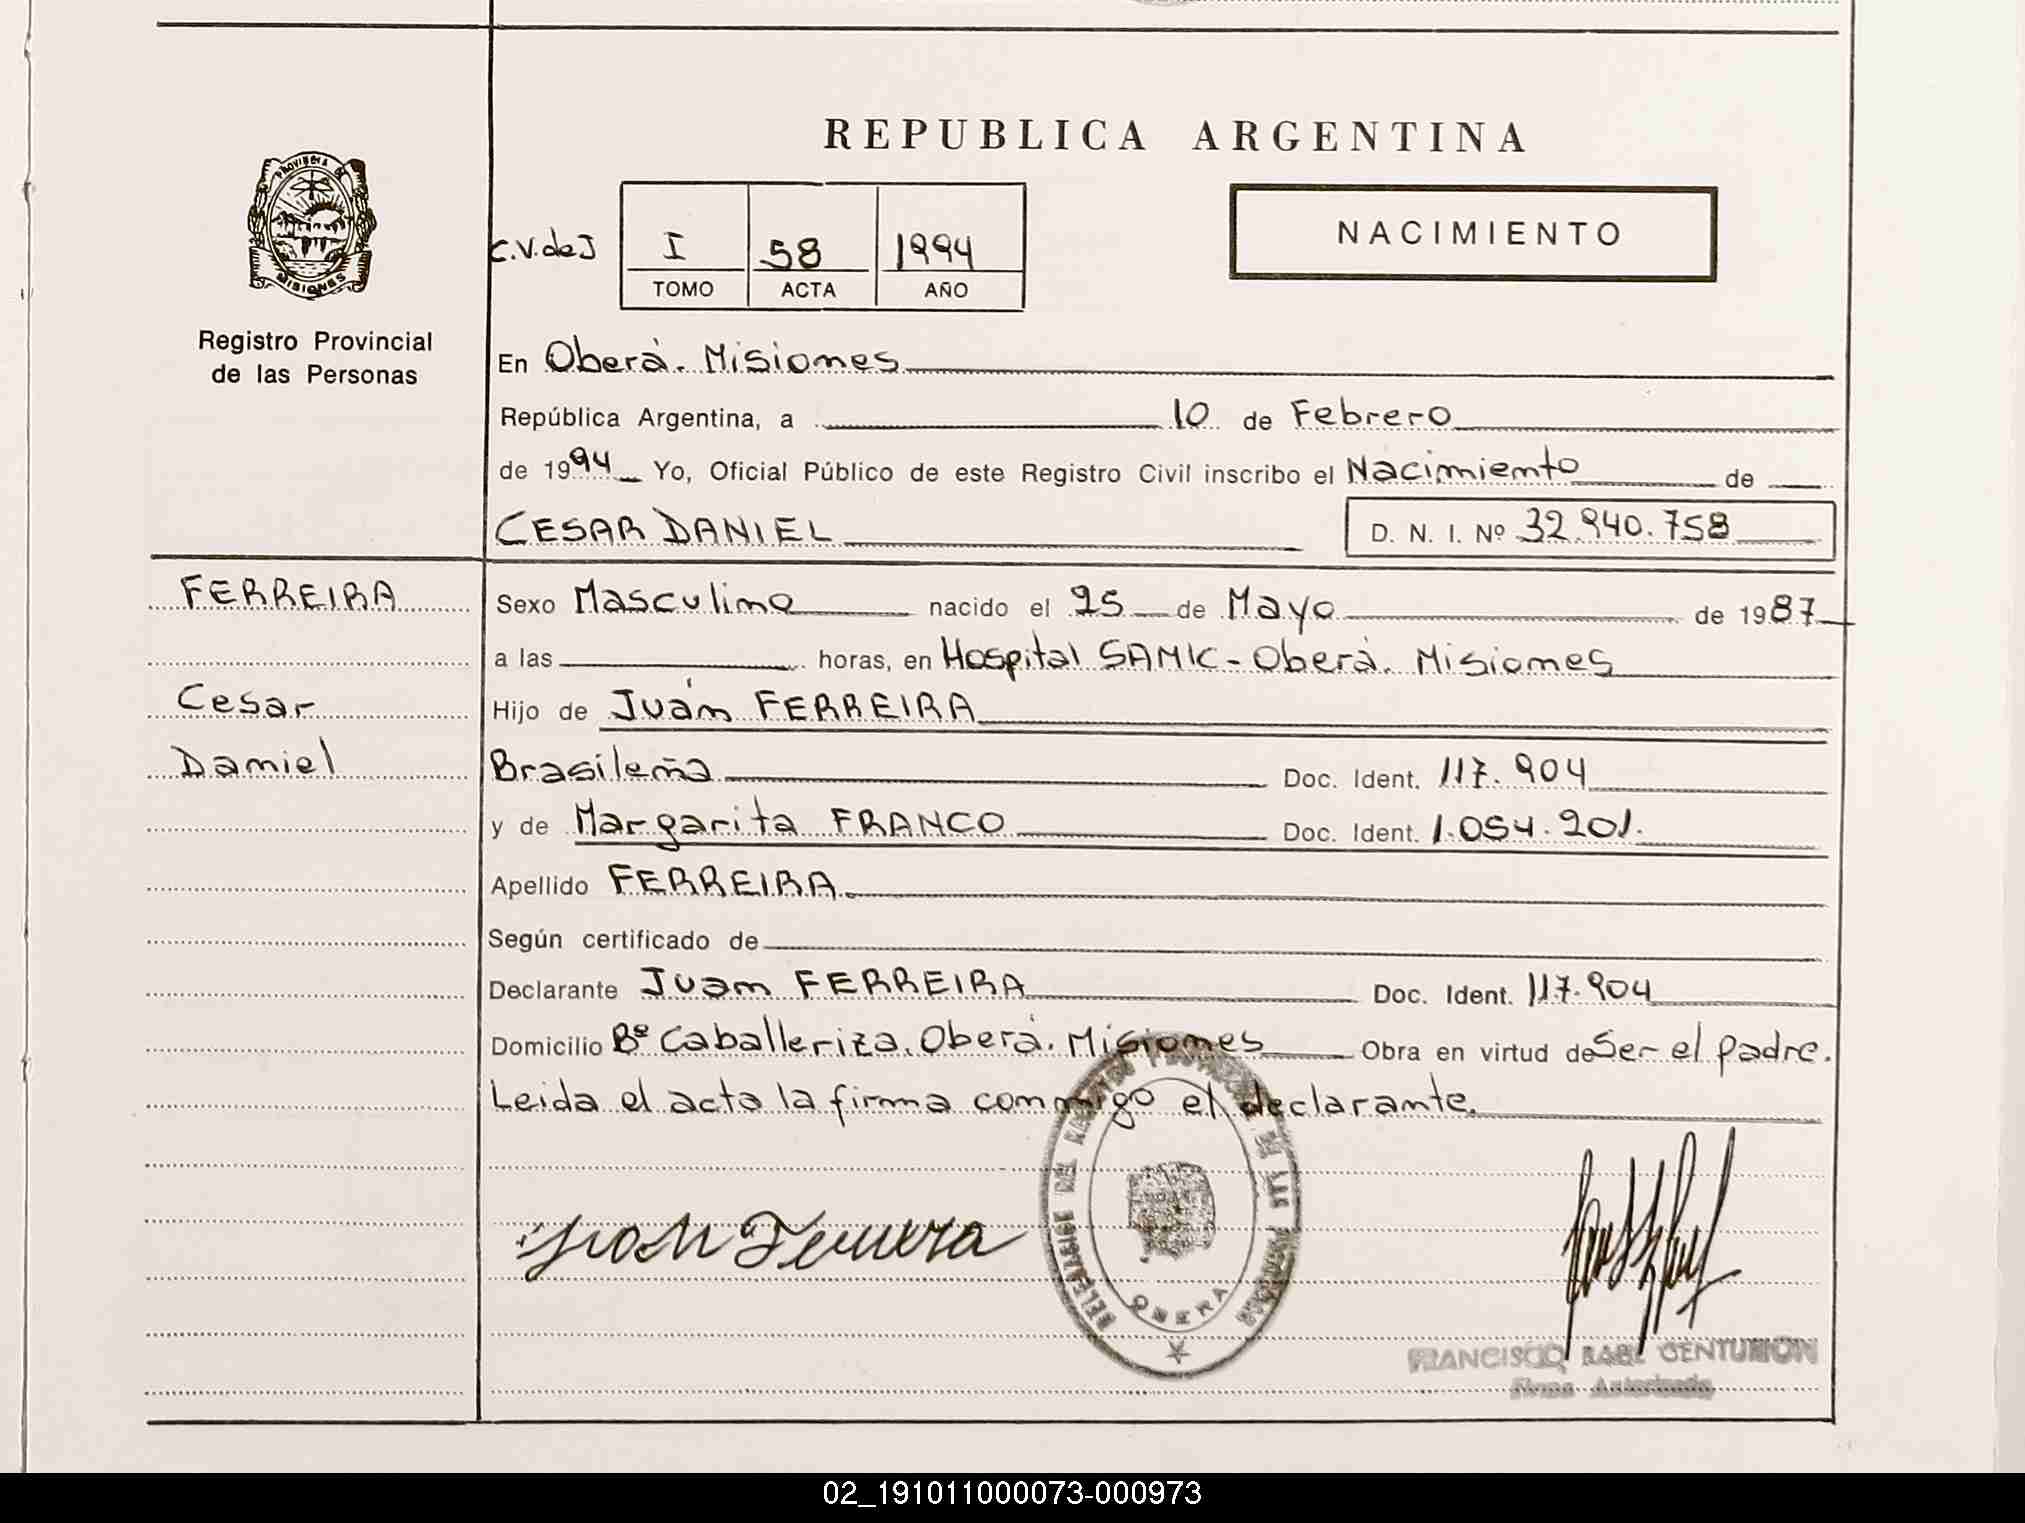 REPUBLICA ARGENTINA
PROVINCIA DE
MISIONES
Registro Provincial
de las Personas
C.V.deJ
I 58 1994
TOMO ACTA AÑO
NACIMIENTO
En Oberá. Misiones
República Argentina, a 10 de Febrero
de 1994 Yo, Oficial Público de este Registro Civil inscribo el Nacimiento de
CESAR DANIEL D. N. I. Nº 32.940.758
FERREIRA
Cesar
Daniel
Sexo Masculino nacido el 25 de Mayo de 1987
a las horas, en Hospital SAMIC - Oberá. Misiones
Hijo de Juán FERREIRA
Brasileña Doc. Ident. 117.904
y de Margarita FRANCO Doc. Ident. 1.054.201.
Apellido FERREIRA.
Según certificado de
Declarante Juan FERREIRA Doc. Ident. 117.904
Domicilio Bº Caballeriza. Oberá. Misiones Obra en virtud de Ser el padre.
Leida el acta la firma conmigo el declarante.
Juan Ferreira
OBERA
FRANCISCO RAUL CENTURION
Firma Autorizada
02_191011000073-000973